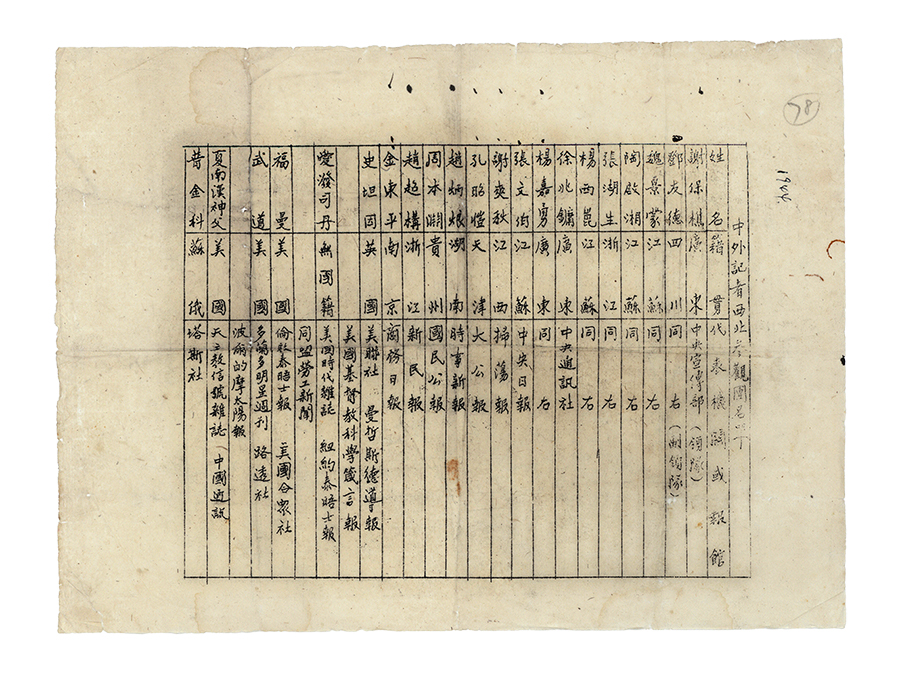 78
1944
中外記者西北參觀團名單
姓名 籍貫 代表機關或報館
謝保樵 廣東 中央宣傳部（領隊）
鄧友德 四川 同右（副領隊）
魏景蒙 江蘇 同右
陶啟湘 江蘇 同右
張湖生 浙江 同右
楊西崑 江蘇 同右
徐兆鏞 廣東 中央通訊社
楊嘉勇 廣東 同右
張文伯 江蘇 中央日報
謝爽秋 江西 掃蕩報
孔昭愷 天津 大公報
趙炳烺 湖南 時事新報
周本淵 貴州 國民公報
趙超構 浙江 新民報
金東平 南京 商務日報
史坦因 英國 美聯社 曼哲斯德導報
美國基督教科學箴言報
愛潑司丹 無國籍 美國時代雜誌 紐約泰晤士報
同盟勞工新聞
福曼 美國 倫敦泰晤士報 美國合眾社
武道 美國 多蘭多明星週刊 路透社
波爾的摩太陽報
夏南漢神父 美國 天主教信號雜誌 中國通訊
普金科 蘇俄 塔斯社